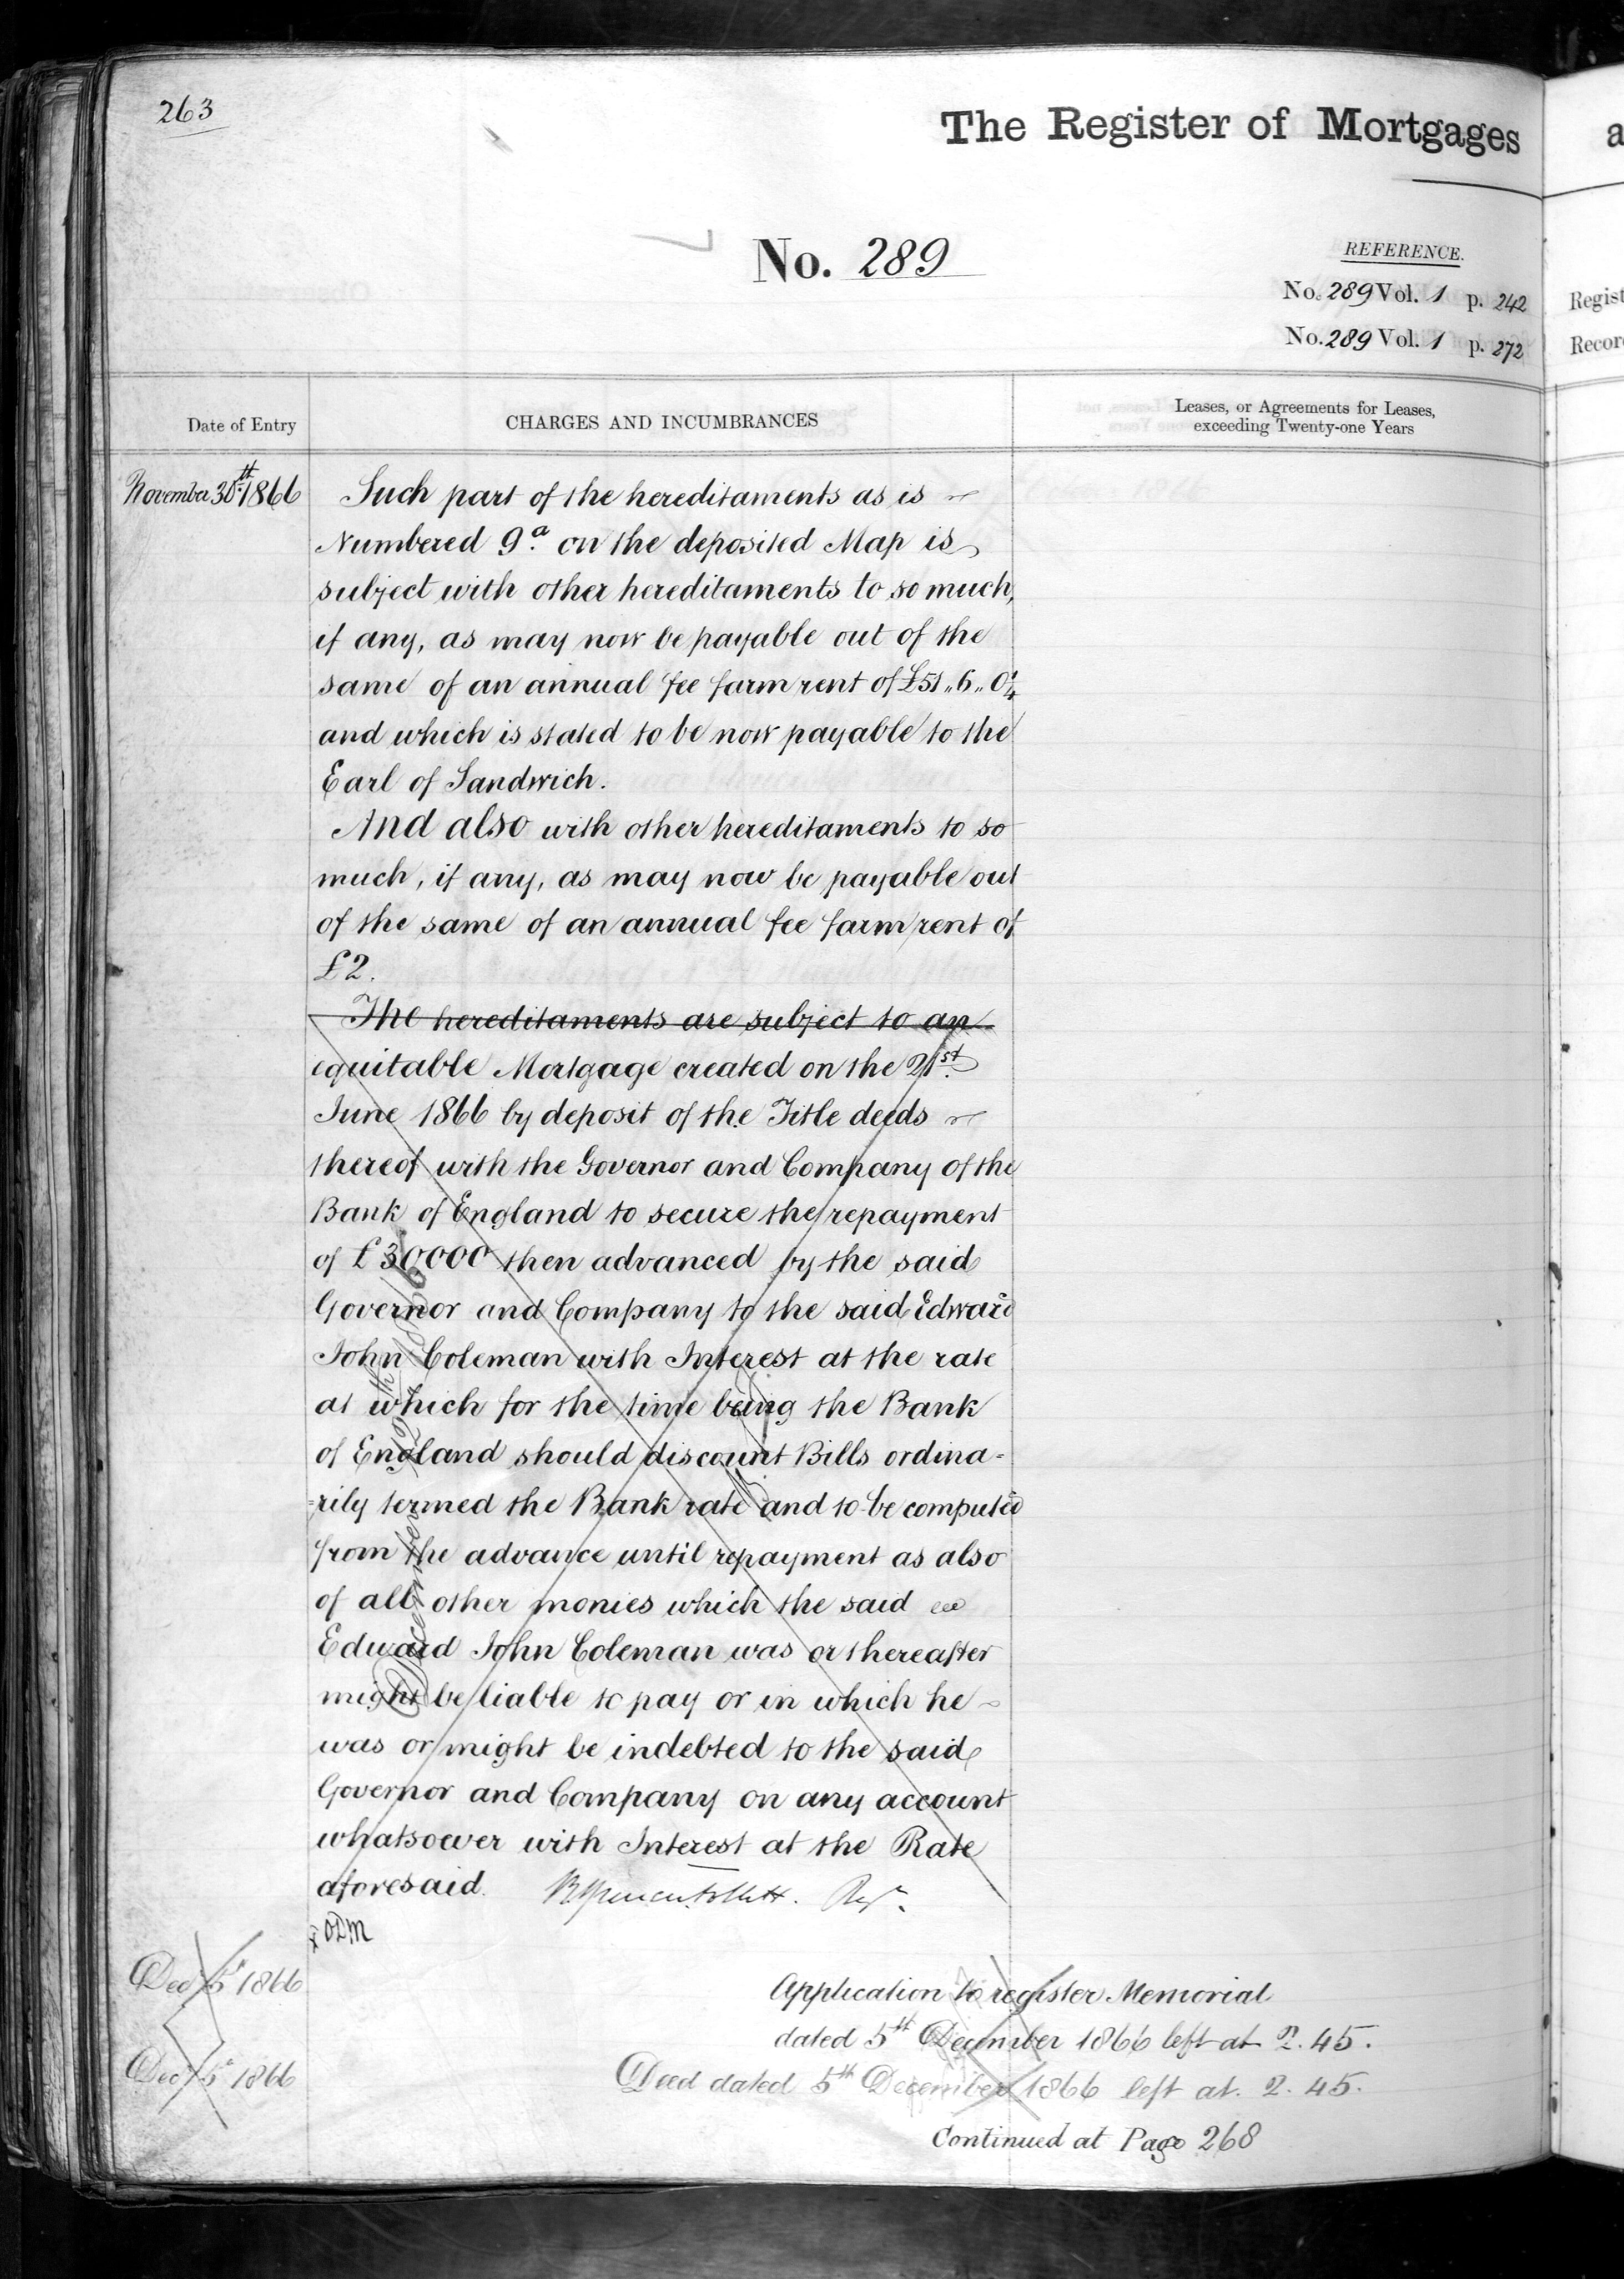 263
The Register of Mortgages
No. 289
REFERENCE.
No. 289 Vol. 1 p. 242
No. 289 Vol. 1 p. 272
Regist
Recor
Date of Entry
CHARGES AND INCUMBRANCES
Leases, or Agreements for Leases,
exceeding Twenty-one Years
November 30th 1866
Such part of the hereditaments as is
Numbered 9a on the deposited Map is
subject with other hereditaments to so much,
if any, as may now be payable out of the
same of an annual fee farm rent of £51,,6,,0¼
and which is stated to be now payable to the
Earl of Sandwich.
And also with other hereditaments to so
much, if any, as may now be payable out
of the same of an annual fee farm rent of
£2.
The hereditaments are subject to an
equitable Mortgage created on the 21st
June 1866 by deposit of the Title deeds
thereof with the Governor and Company of the
Bank of England to secure the repayment
of £30000 then advanced by the said
Governor and Company to the said Edward
John Coleman with Interest at the rate
at which for the time being the Bank
of England should discount Bills ordina-
-rily termed the Bank rate and to be computed
from the advance until repayment as also
of all other monies which the said
Edward John Coleman was or thereafter
might be liable to pay or in which he
was or might be indebted to the said
Governor and Company on any account
whatsoever with Interest at the Rate
aforesaid.
Dec 5 1866
Application to register Memorial
dated 5th December 1866 left at 2.45.
Dec 5 1866
Deed dated 5th December 1866 left at 2.45.
Continued at Page 268